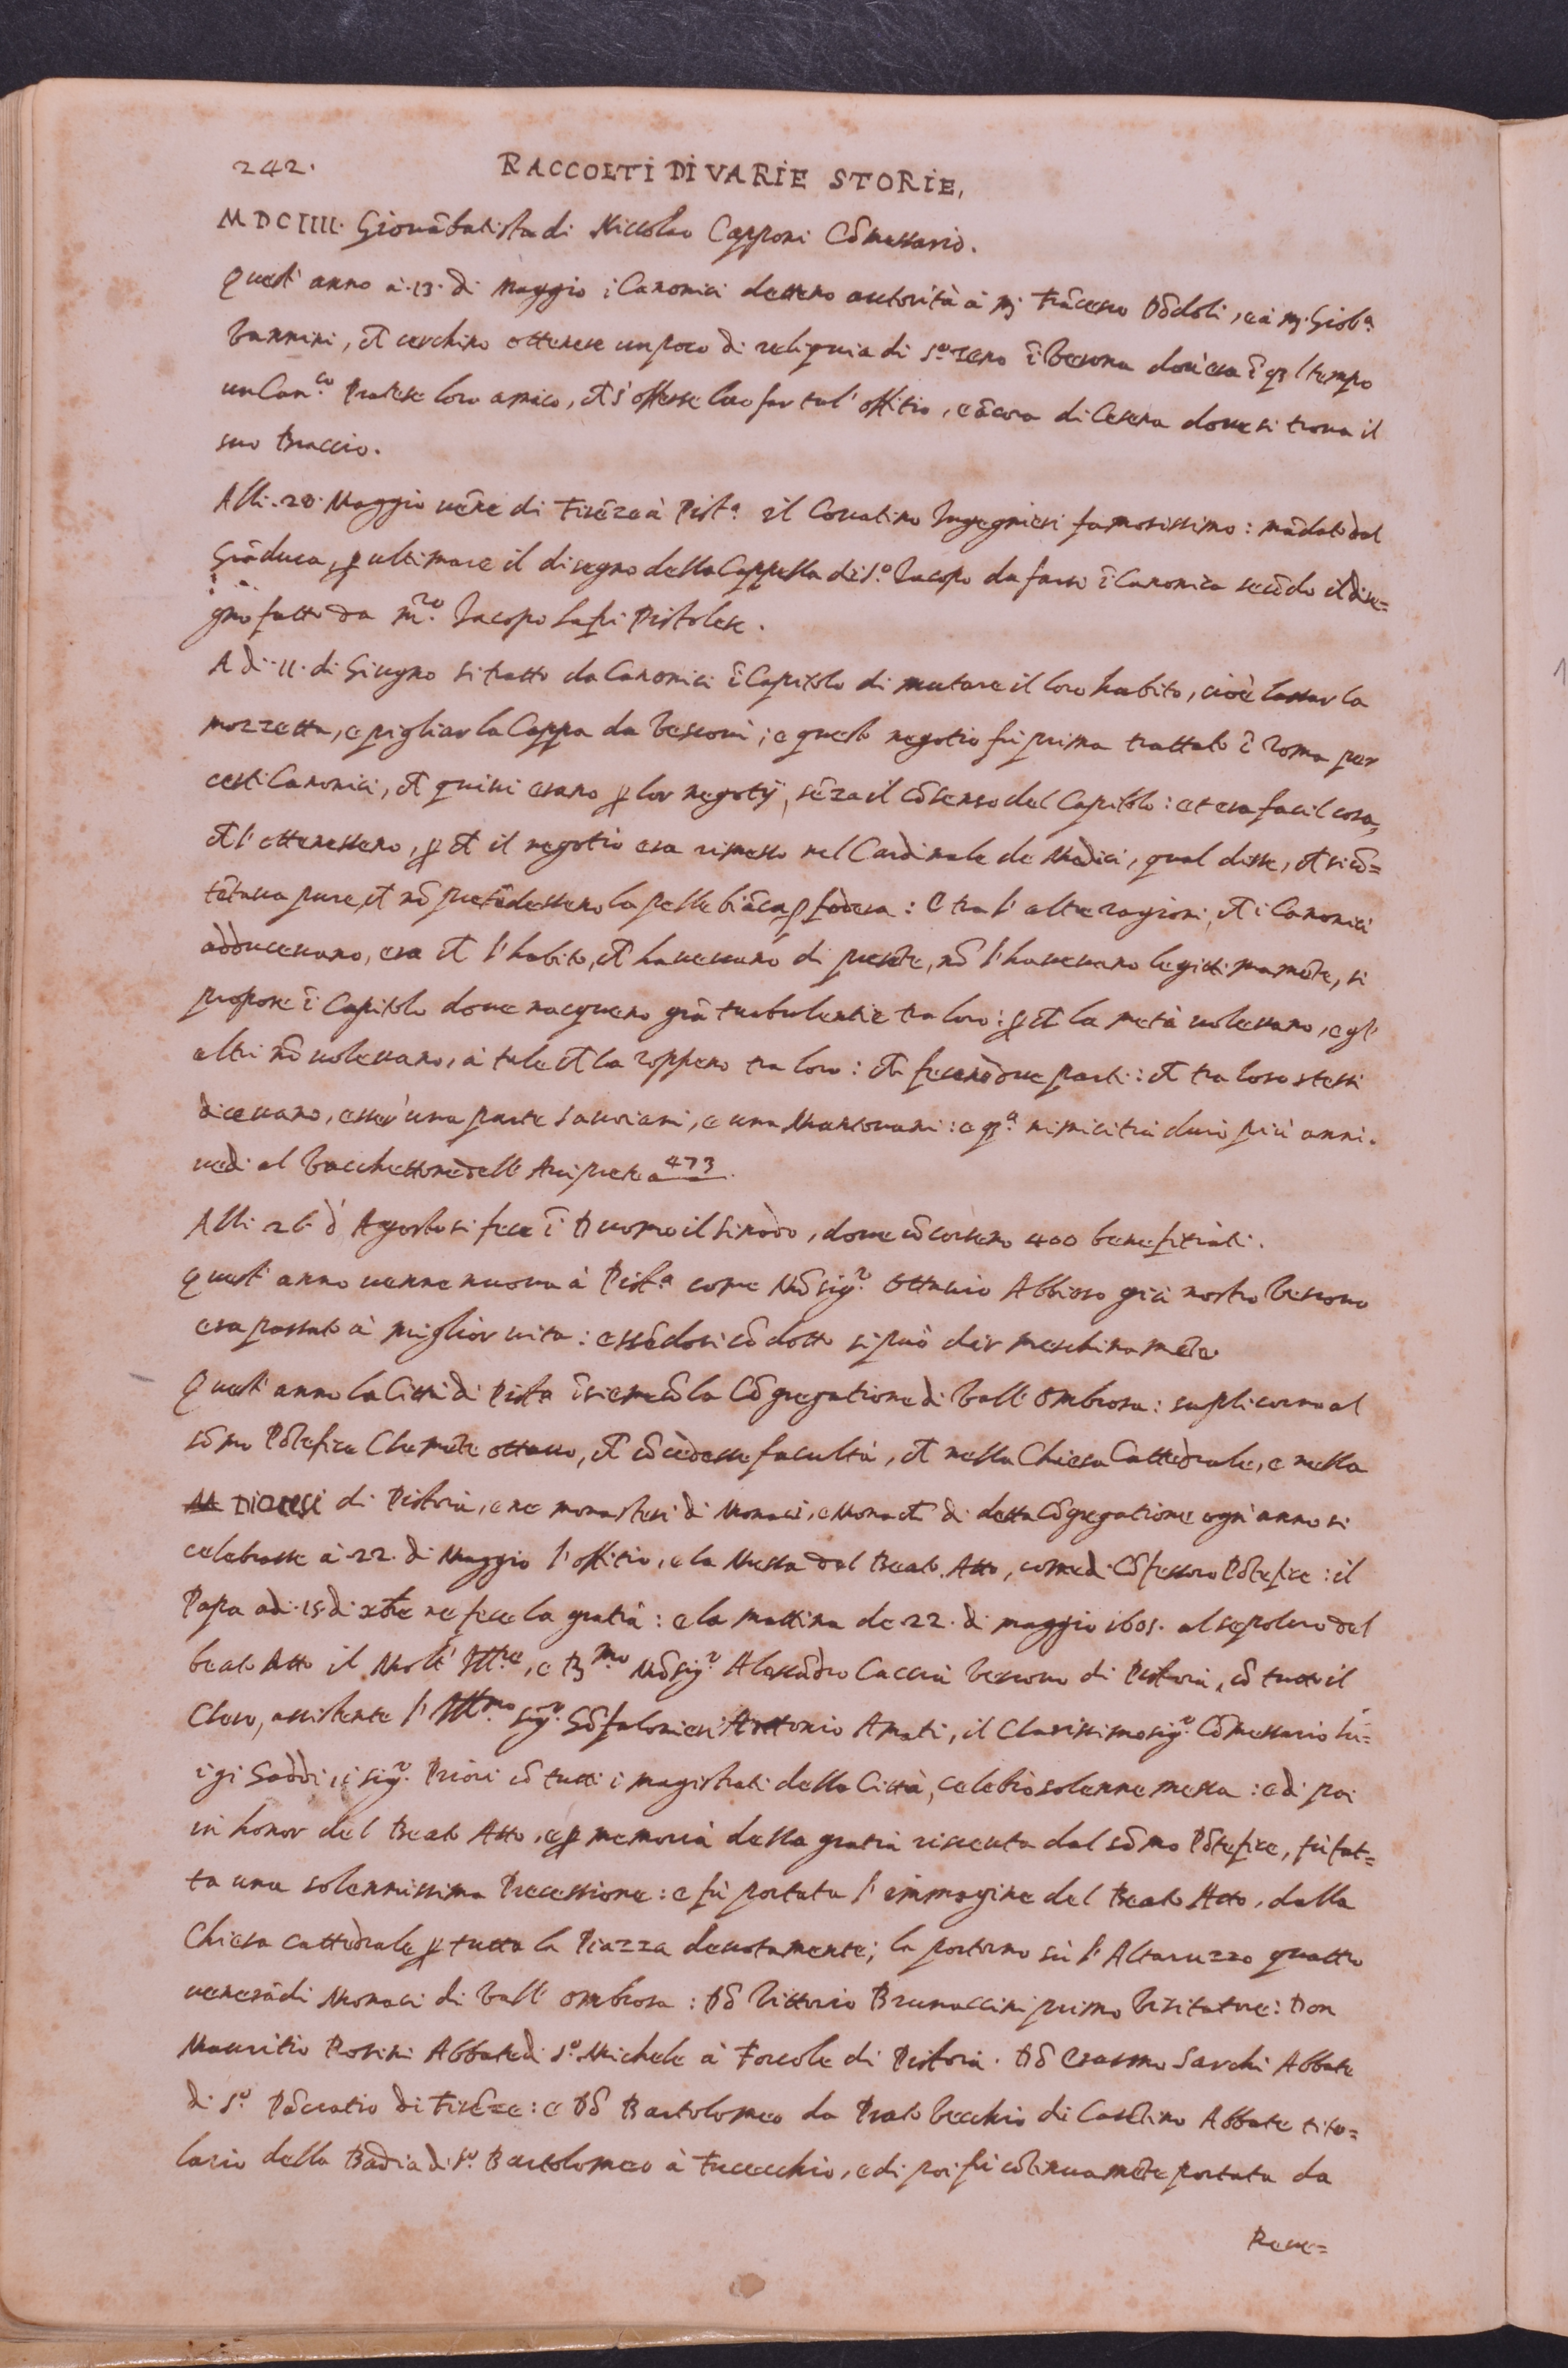 242.
RACCOLTI DI VARIE STORIE,
MDCIIII. Giovãbatista di Niccolao Capponi Cõmessario.
Quest' anno à .13. di Maggio i Canonici dettero autorità à Mʒ Frãcesco Dõdoli, e à mʒ. Giobᵃ
Vannini, ch̃ cerchino ottenere un poco di reliquia di Sᵒ Zeno ĩ Verona dov'era ĩ qʒl tempo
un Canᶜᵒ. Pratese loro amico, ch̃ s'offerse loro far tal' offitio, e ãcora di Cesena dove si trova il
suo Braccio.
Alli .20. Maggio vẽne di Firẽze à Pistᵃ. il Ingegnieri famosissimo: mãdato dal
Grãduca, ꝑ ultimare il disegno della Cappella di Sᵒ. Iacopo da farsi ĩ Canonica secõdo il dise=
gno fatto da mʳᵒ. Iacopo Lafri Pistolese.
A di .11. di Giugno si trattò da Canonici ĩ Capitolo di mutare il loro habito, cioè lassar la
mozzetta, e pigliar la Cappa da Vescovi; e questo negotio fù prima trattato ĩ Roma per
certi Canonici, ch̃ quivi erano ꝑ lor negotÿ, sẽza il cõsenso del Capitolo: et era facil cosa,
ch̃ l'ottenessero, ꝑ ch̃ il negotio era rimesso nel Cardinale de Medici, qual disse, ch̃ si cõ=
tẽtava pure, ch̃ nõ pretẽdessero la pelle biãca ꝑ fodera: e tra l'altre ragioni, ch̃ i Canonici
adducevano, era ch̃ l'habito, ch̃ havevano di presẽte, nõ l'havevano legittimamẽte, si
propose ĩ Capitolo dove nacquero grã turbulentie tra loro: ꝑ ch̃ la metà volevano, e gl'
altri nõ volevano, à tale ch̃ la roppero tra loro: ch̃ fecero due parti: ch̃ tra loro stessi
dicevano, esser'una parte Sauriani, e una : e qʒᵃ nimicitia durò più anni.
vedi al Vacchettone dell' Arciprete a 473.
Alli 26 d' Agosto si fece ĩ Duomo il Sinodo, dove cõcorsero 400 benefitiati.
Quest' anno venne nuova à Pistᵃ come Mõsigʳ. Ottavio Abbioso già nostro Vescovo
era passato à miglior vita: essẽdosi cõdotto si può dir meschinamẽte
Quest' anno la Città di Pistᵃ ĩsieme cõ la Cõgregatione di Vall'Ombrosa: suplicorno al
sõmo Põtefice Clemẽte ottavo, ch̃ cõcedesse facultà, ch̃ nella Chiesa Cattedrale, e nella
Diocesi di Pistoia, e ne monasteri di Monaci, e Monach̃ di detta Cõgregatione ogni anno si
celebrasse à .22. di Maggio l'offitio, e la Messa del Beato Atto, come di Cõfessoro Põtefice: il
Papa adi .15. di xbre ne fece la gratia: e la mattina de .22. di maggio 1605. al sepolcro del
beato Atto il Molt' Illʳᵉ, e Rʒᵐᵒ Mõsigʳ. Alessãdro Caccia Vescovo di Pistoia, cõ tutto il
Clero, assistente l'Illᵐᵒ sigʳ. Gõfalonieri Antonio Amati, il Clarissimo sigʳ. Cõmessario Lu=
igi Gaddi, i sigʳ. Priori cõ tutti i magistrati della Città, celebrò solenne messa: e di poi
in honor del Beato Atto, e ꝑ memoria della gratia ricevuta dal sõmo Põtefice, fù fat=
ta una solennissima Processione: e fù portata l'immagine del Beato Atto, dalla
Chiesa cattedrale ꝑ tutta la Piazza devotamente; la portorno sù l'Altaruzzo quattro
venerãdi Monaci di Vall' ombrosa: Dõ Vittorio Brunaccini primo Visitatore: Don
Mauritio Rosini Abbate di Sᵒ. Michele à Forcole di Pistoia. Dõ Erasmo Sarchi Abbate
di Sᵒ. Pãcratio di Firẽze: e Dõ Bartolomeo da Prato Vecchio di Casẽtino Abbate tito=
lario della Badia di Sᵒ. Bartolomeo à Fucecchio, e di poi fù cõtinuamẽte portata da
Reve=